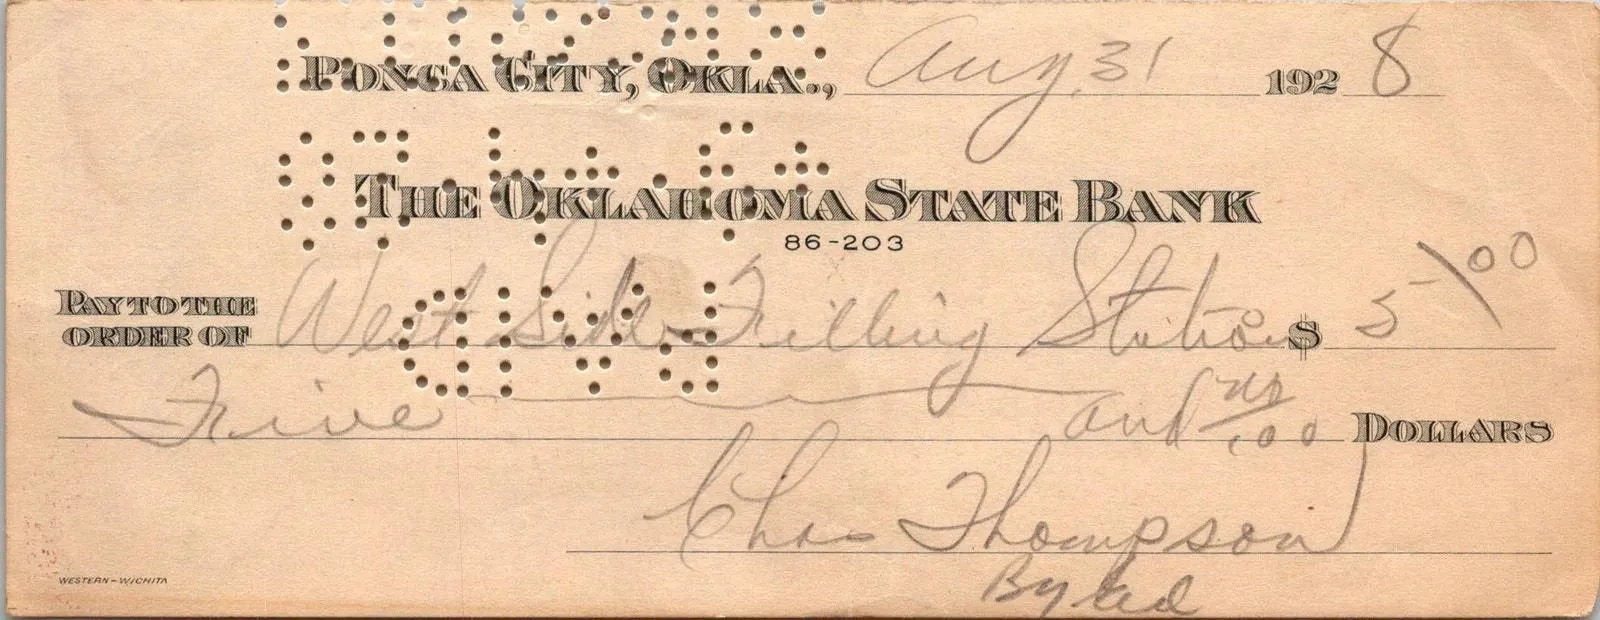 PONCA CITY, OKLA., Aug. 31 1928
THE OKLAHOMA STATE BANK
86-203
PAY TO THE ORDER OF West Side Filling Station $ 5.00
PAID
Five and no/100 DOLLARS
Chas Thompson
By
WESTERN-WICHITA